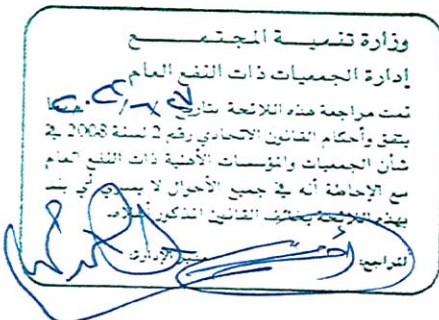 وزارة تنميــة المجتمــــع
إدارة الجمعيات ذات النفع العام
تمت مراجعة هذه اللائحة بتاريخ بما
يتفق وأحكام القانون الاتحادي رقم 2 لسنة 2008 في
شأن الجمعيات والمؤسسات الأهلية ذات النفع العام
مع الإحاطة أنه في جميع الأحوال لا يسري أي بند
بهذه اللائحة يخالف القانون المذكور أعلاه.
المراجع: مدير الإدارة: